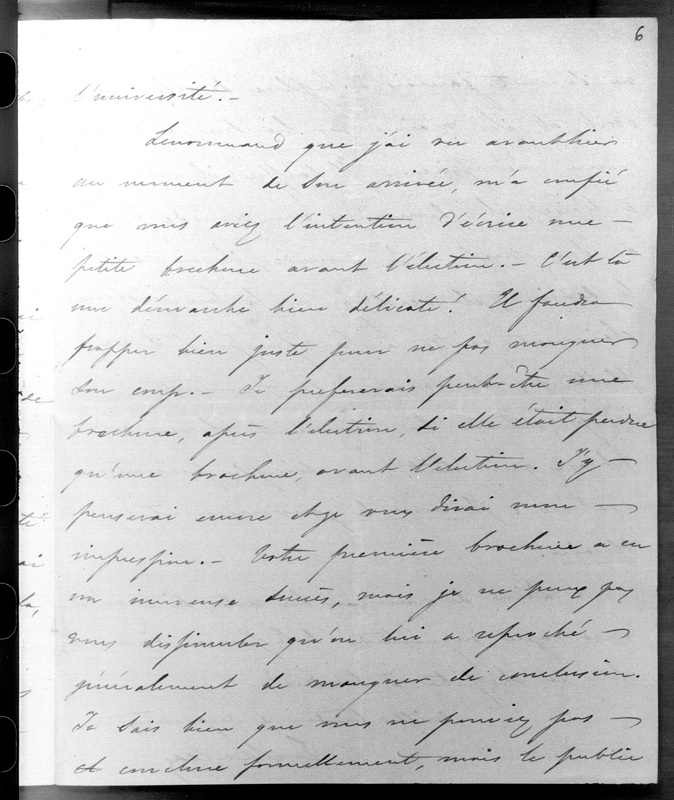 6
l'université. —
Lenormand que j'ai vu avant hier
au moment de son arrivée, m'a confié
que vous aviez l'intention d'écrire une —
petite brochure avant l'élection. — C'est là
une démarche bien délicate! Il faudra
frapper bien juste pour ne pas manquer
son coup. — Je préfererais peut-être une
brochure, après l'élection, si elle était perdue
qu'une brochure, avant l'élection. J'y —
penserai encore et je vous dirai mon —
impression. — Votre première brochure a eu
un immense succès, mais je ne peux pas
vous dissimuler qu'on lui a reproché —
généralement de manquer de conclusion.
Je sais bien que vous ne pouviez pas —
conclure formellement, mais le public